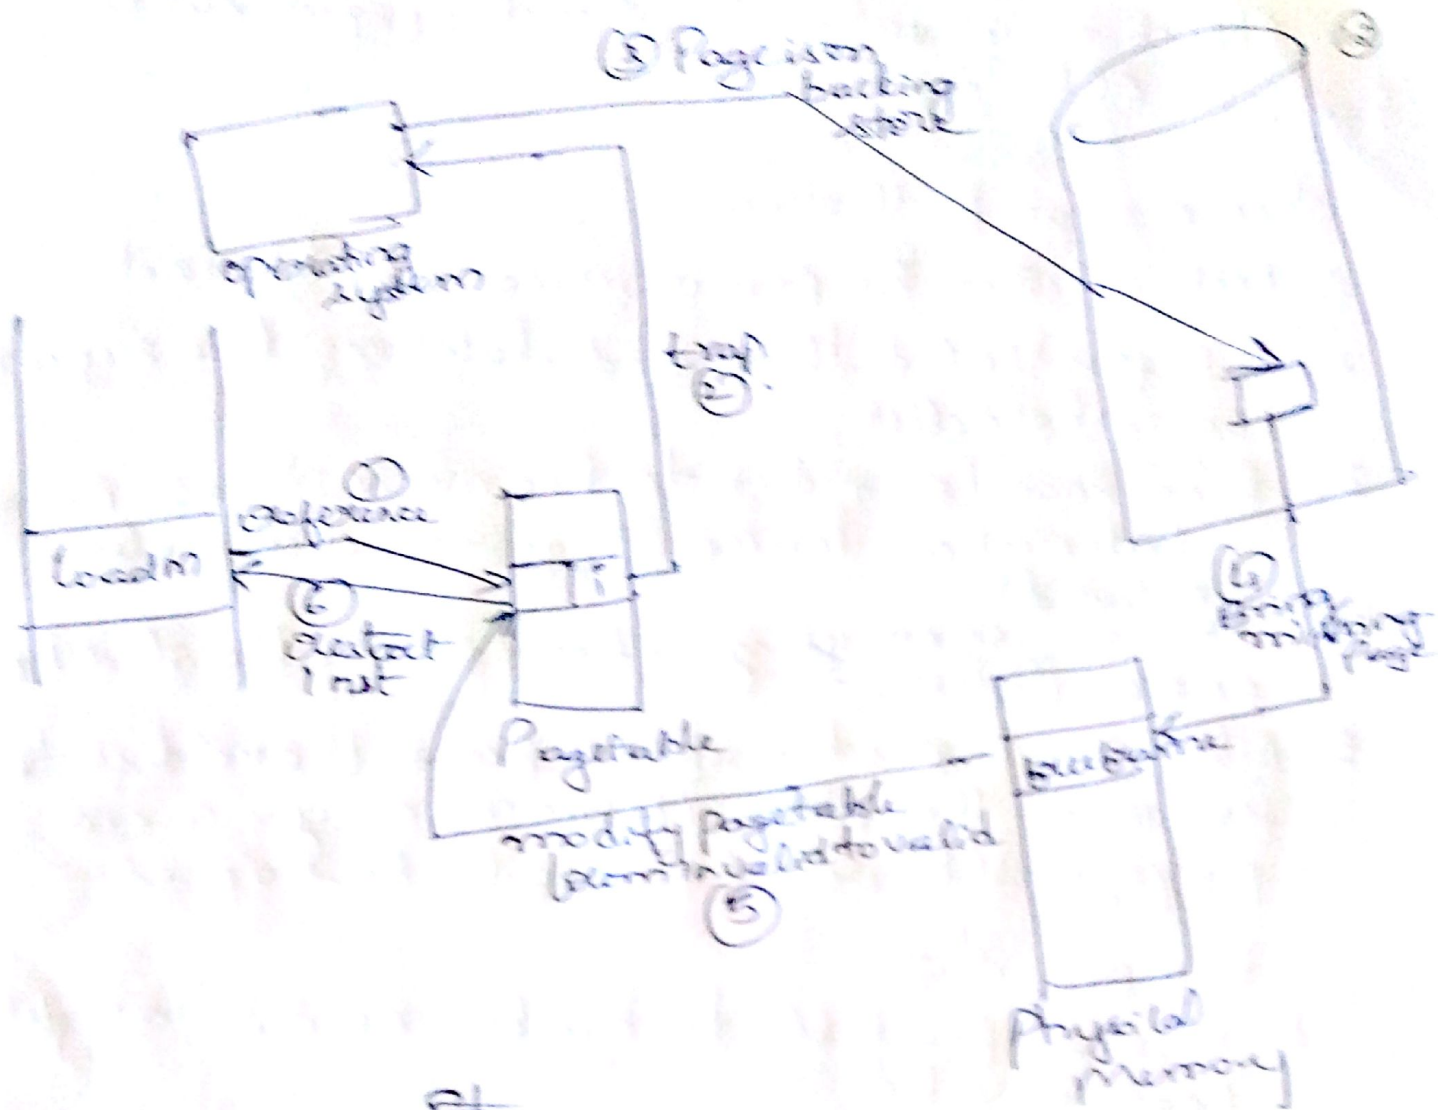 ③ Page is on
backing
store
③
operating
system
trap
②
①
reference
load M
i
⑥
restart
Inst
④
bring
missing
page
Pagetable
modify pagetable
from invalid to valid
⑤
Physical
Memory